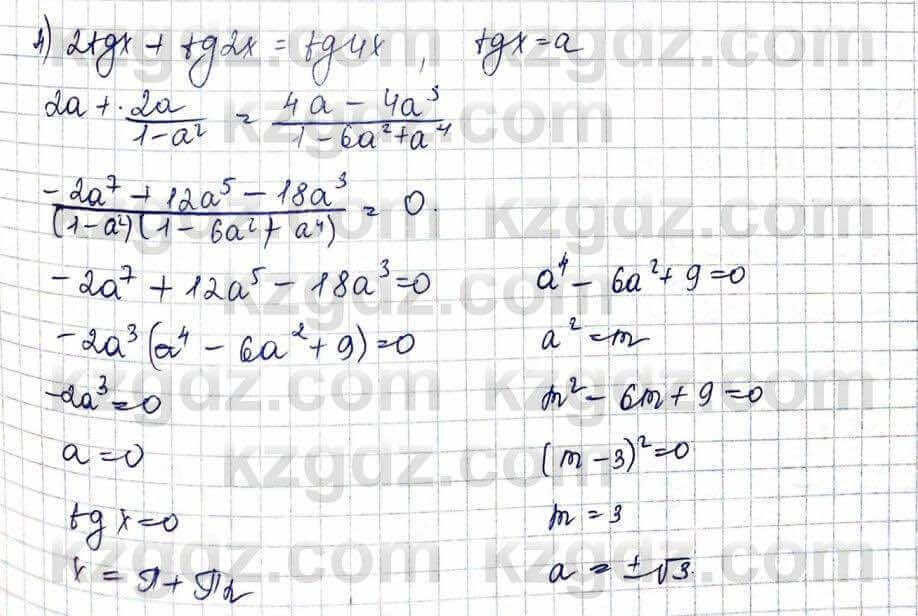 1) 2tgx + tg2x = tg4x , tgx = a
2a + 2a/(1-a²) = (4a - 4a³)/(1 - 6a² + a⁴)
(-2a⁷ + 12a⁵ - 18a³)/((1-a²)(1 - 6a² + a⁴)) = 0.
-2a⁷ + 12a⁵ - 18a³ = 0
-2a³(a⁴ - 6a² + 9) = 0
-2a³ = 0
a = 0
tg x = 0
x = π + πn
a⁴ - 6a² + 9 = 0
a² = m
m² - 6m + 9 = 0
(m - 3)² = 0
m = 3
a = ±√3.
kzgdz.com
kzgdz.com
kzgdz.com
kzgdz.com
kzgdz.com
kzgdz.com